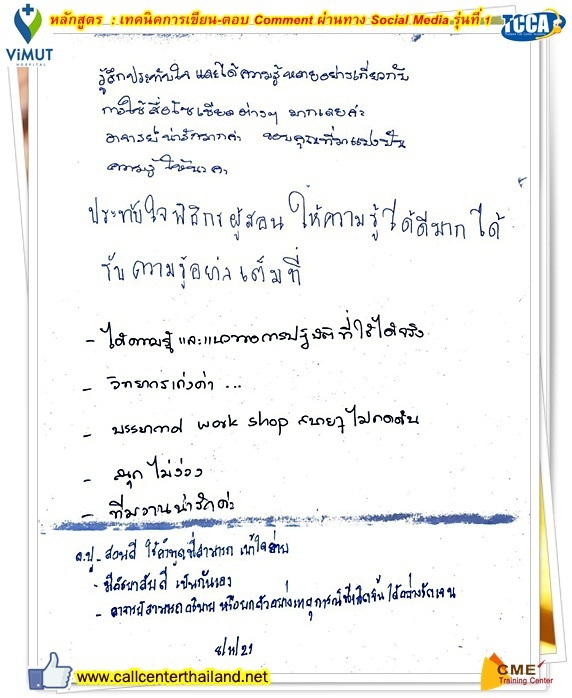 หลักสูตร : เทคนิคการเขียน-ตอบ Comment ผ่านทาง Social Media รุ่นที่ 1
ViMUT
TCCA
รู้สึกประทับใจ และได้ความรู้หลายอย่างเกี่ยวกับ
การใช้สื่อโซเชียลต่างๆ มากเลยค่ะ
อาจารย์น่ารักมากค่ะ ขอบคุณที่มาแบ่งปัน
ความรู้ให้นะคะ
ประทับใจพิธีกร ผู้สอน ให้ความรู้ได้ดีมาก ได้
รับความรู้อย่างเต็มที่
- ได้ความรู้ และแนวทางการปฏิบัติที่ใช้ได้จริง
- วิทยากรเก่งค่ะ ...
- บรรยากาศ work shop สบายๆ ไม่กดดัน
- สนุก ไม่ง่วง
- ทีมงานน่ารักค่ะ
อ.ปู - สอนดี ใช้คำพูดที่สามารถ เข้าใจง่าย
- มีอัธยาศัยดี เป็นกันเอง
- อาจารย์สามารถอธิบาย หรือยกตัวอย่างเหตุการณ์ที่เกิดขึ้น ได้อย่างชัดเจน
www.callcenterthailand.net
CME
Training Center